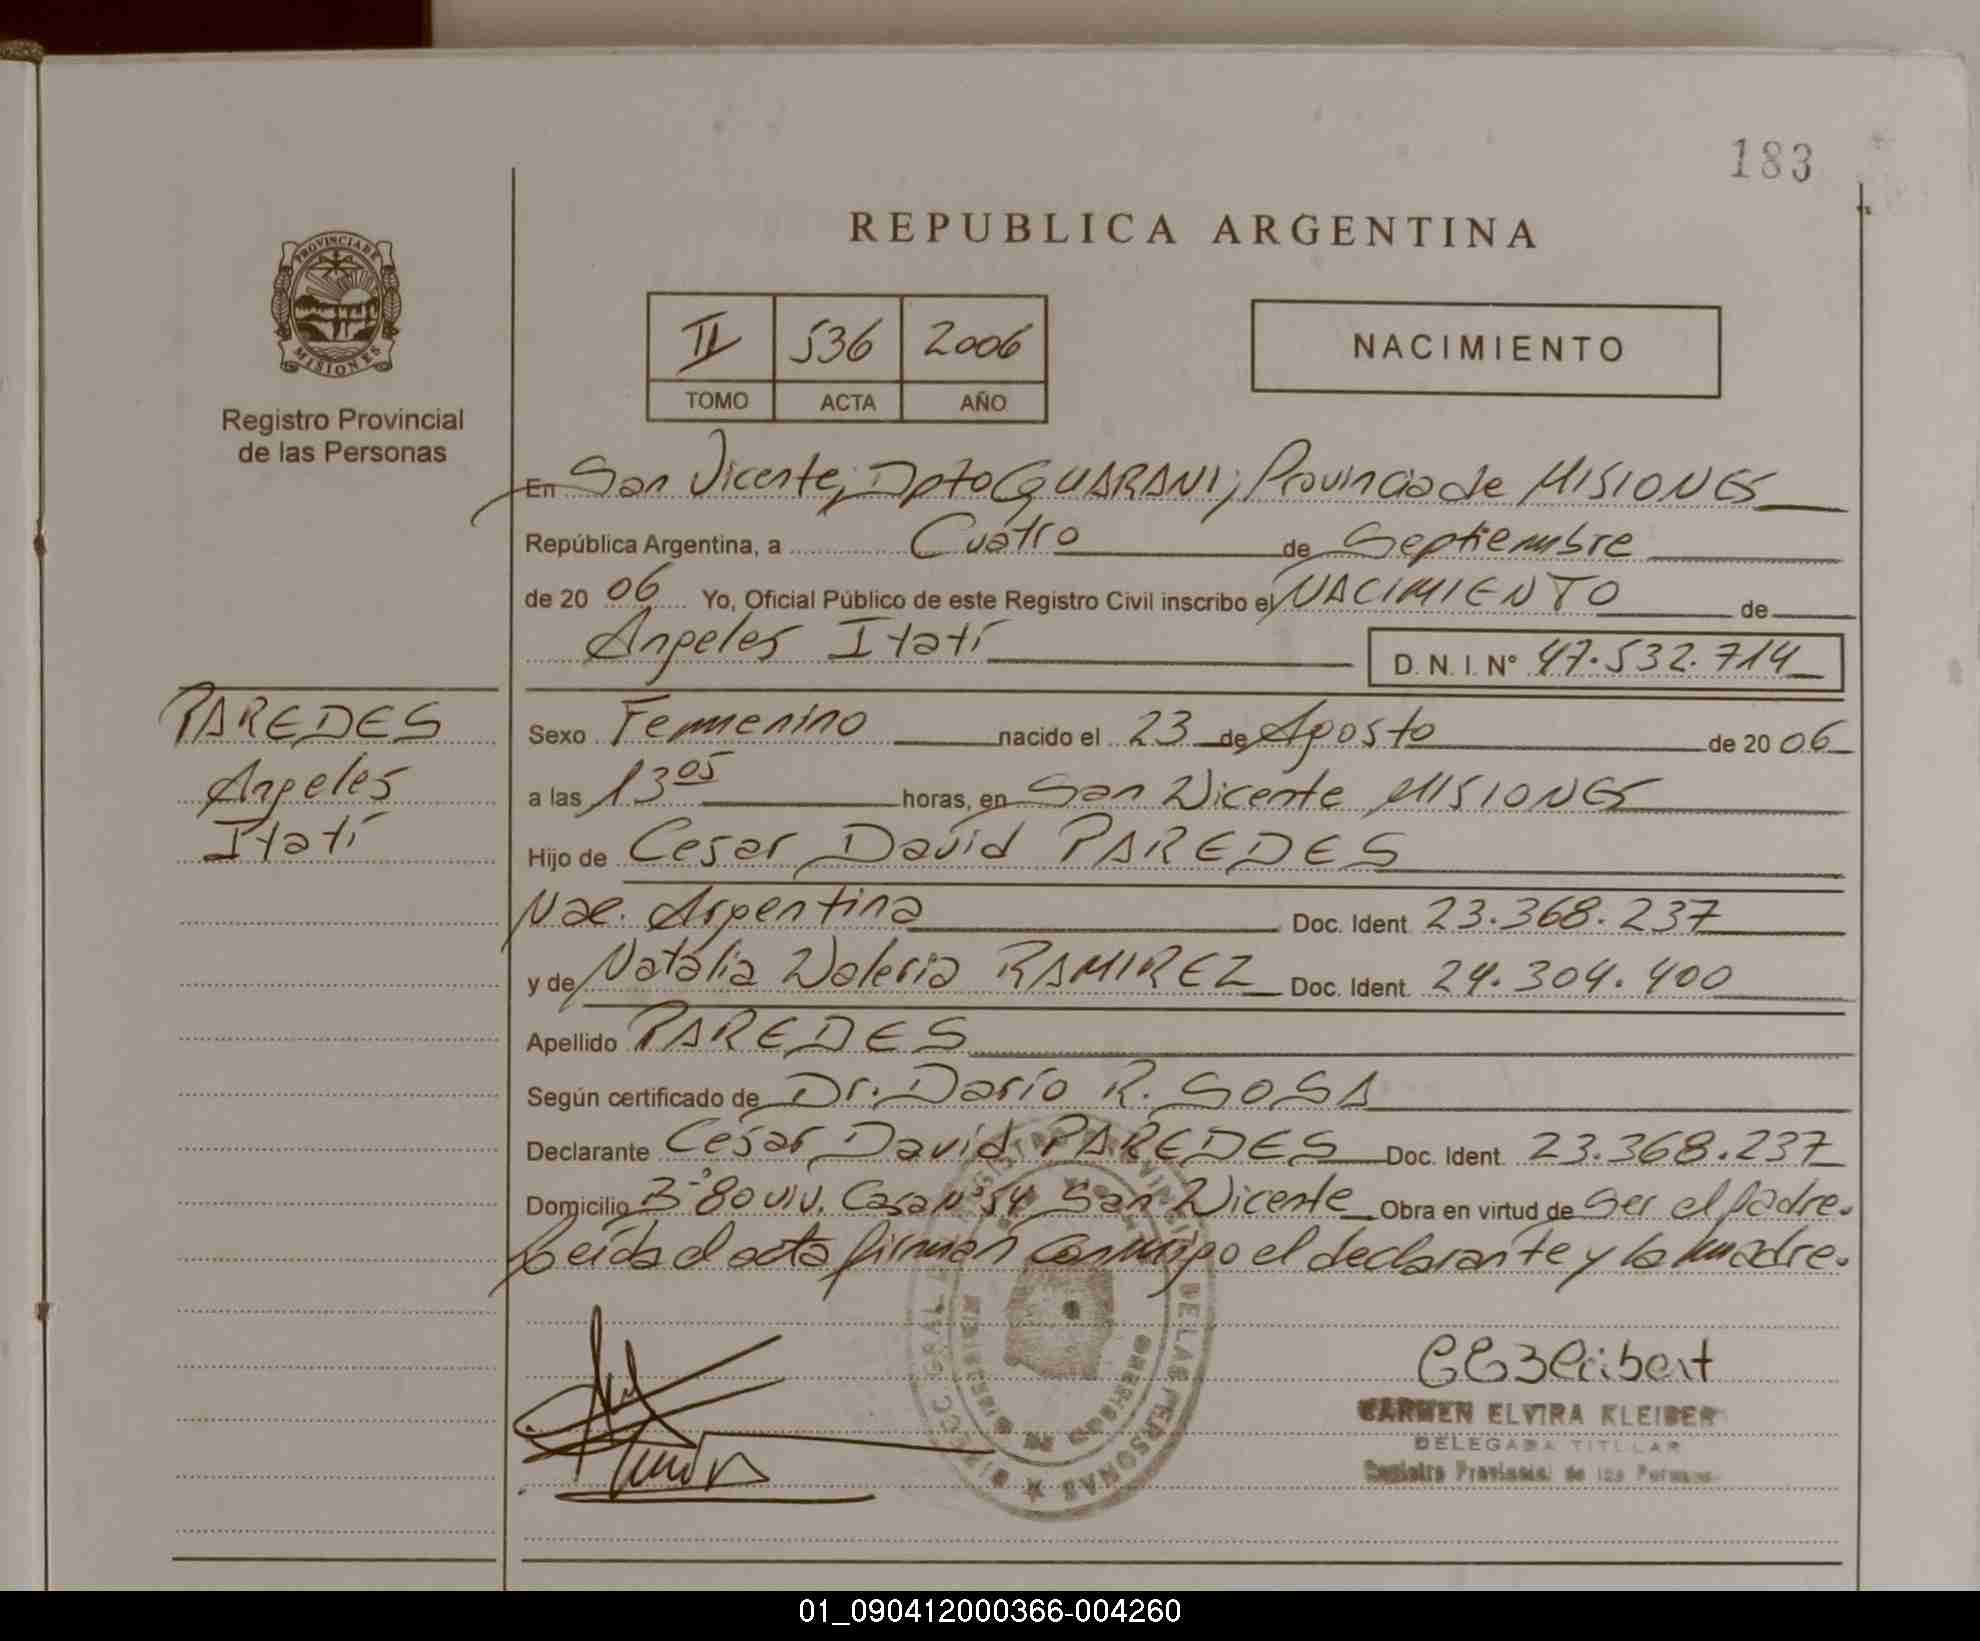 183
REPUBLICA ARGENTINA
PROVINCIA DE
MISIONES
Registro Provincial
de las Personas
II 536 2006
TOMO ACTA AÑO
NACIMIENTO
En San Vicente, Dpto GUARANI; Provincia de MISIONES
República Argentina, a Cuatro de Septiembre
de 20 06 Yo, Oficial Público de este Registro Civil inscribo el NACIMIENTO de
Angeles Itatí D. N. I. N° 47.532.714
PAREDES
Angeles
Itatí
Sexo Femenino nacido el 23 de Agosto de 20 06
a las 13 05 horas, en San Vicente MISIONES
Hijo de Cesar David PAREDES
Nac. Argentina Doc. Ident. 23.368.237
y de Natalia Valeria RAMIREZ Doc. Ident. 24.304.400
Apellido PAREDES
Según certificado de Dr. Darío R. SOSA
Declarante César David PAREDES Doc. Ident. 23.368.237
Domicilio B° 80 viv. Casa N° 54 San Vicente Obra en virtud de ser el padre.
Leída el acta firman conmigo el declarante y la madre.
DE LAS PERSONAS
CARMEN ELVIRA KLEIBER
DELEGADA TITULAR
Registro Provincial de las Personas
01_090412000366-004260